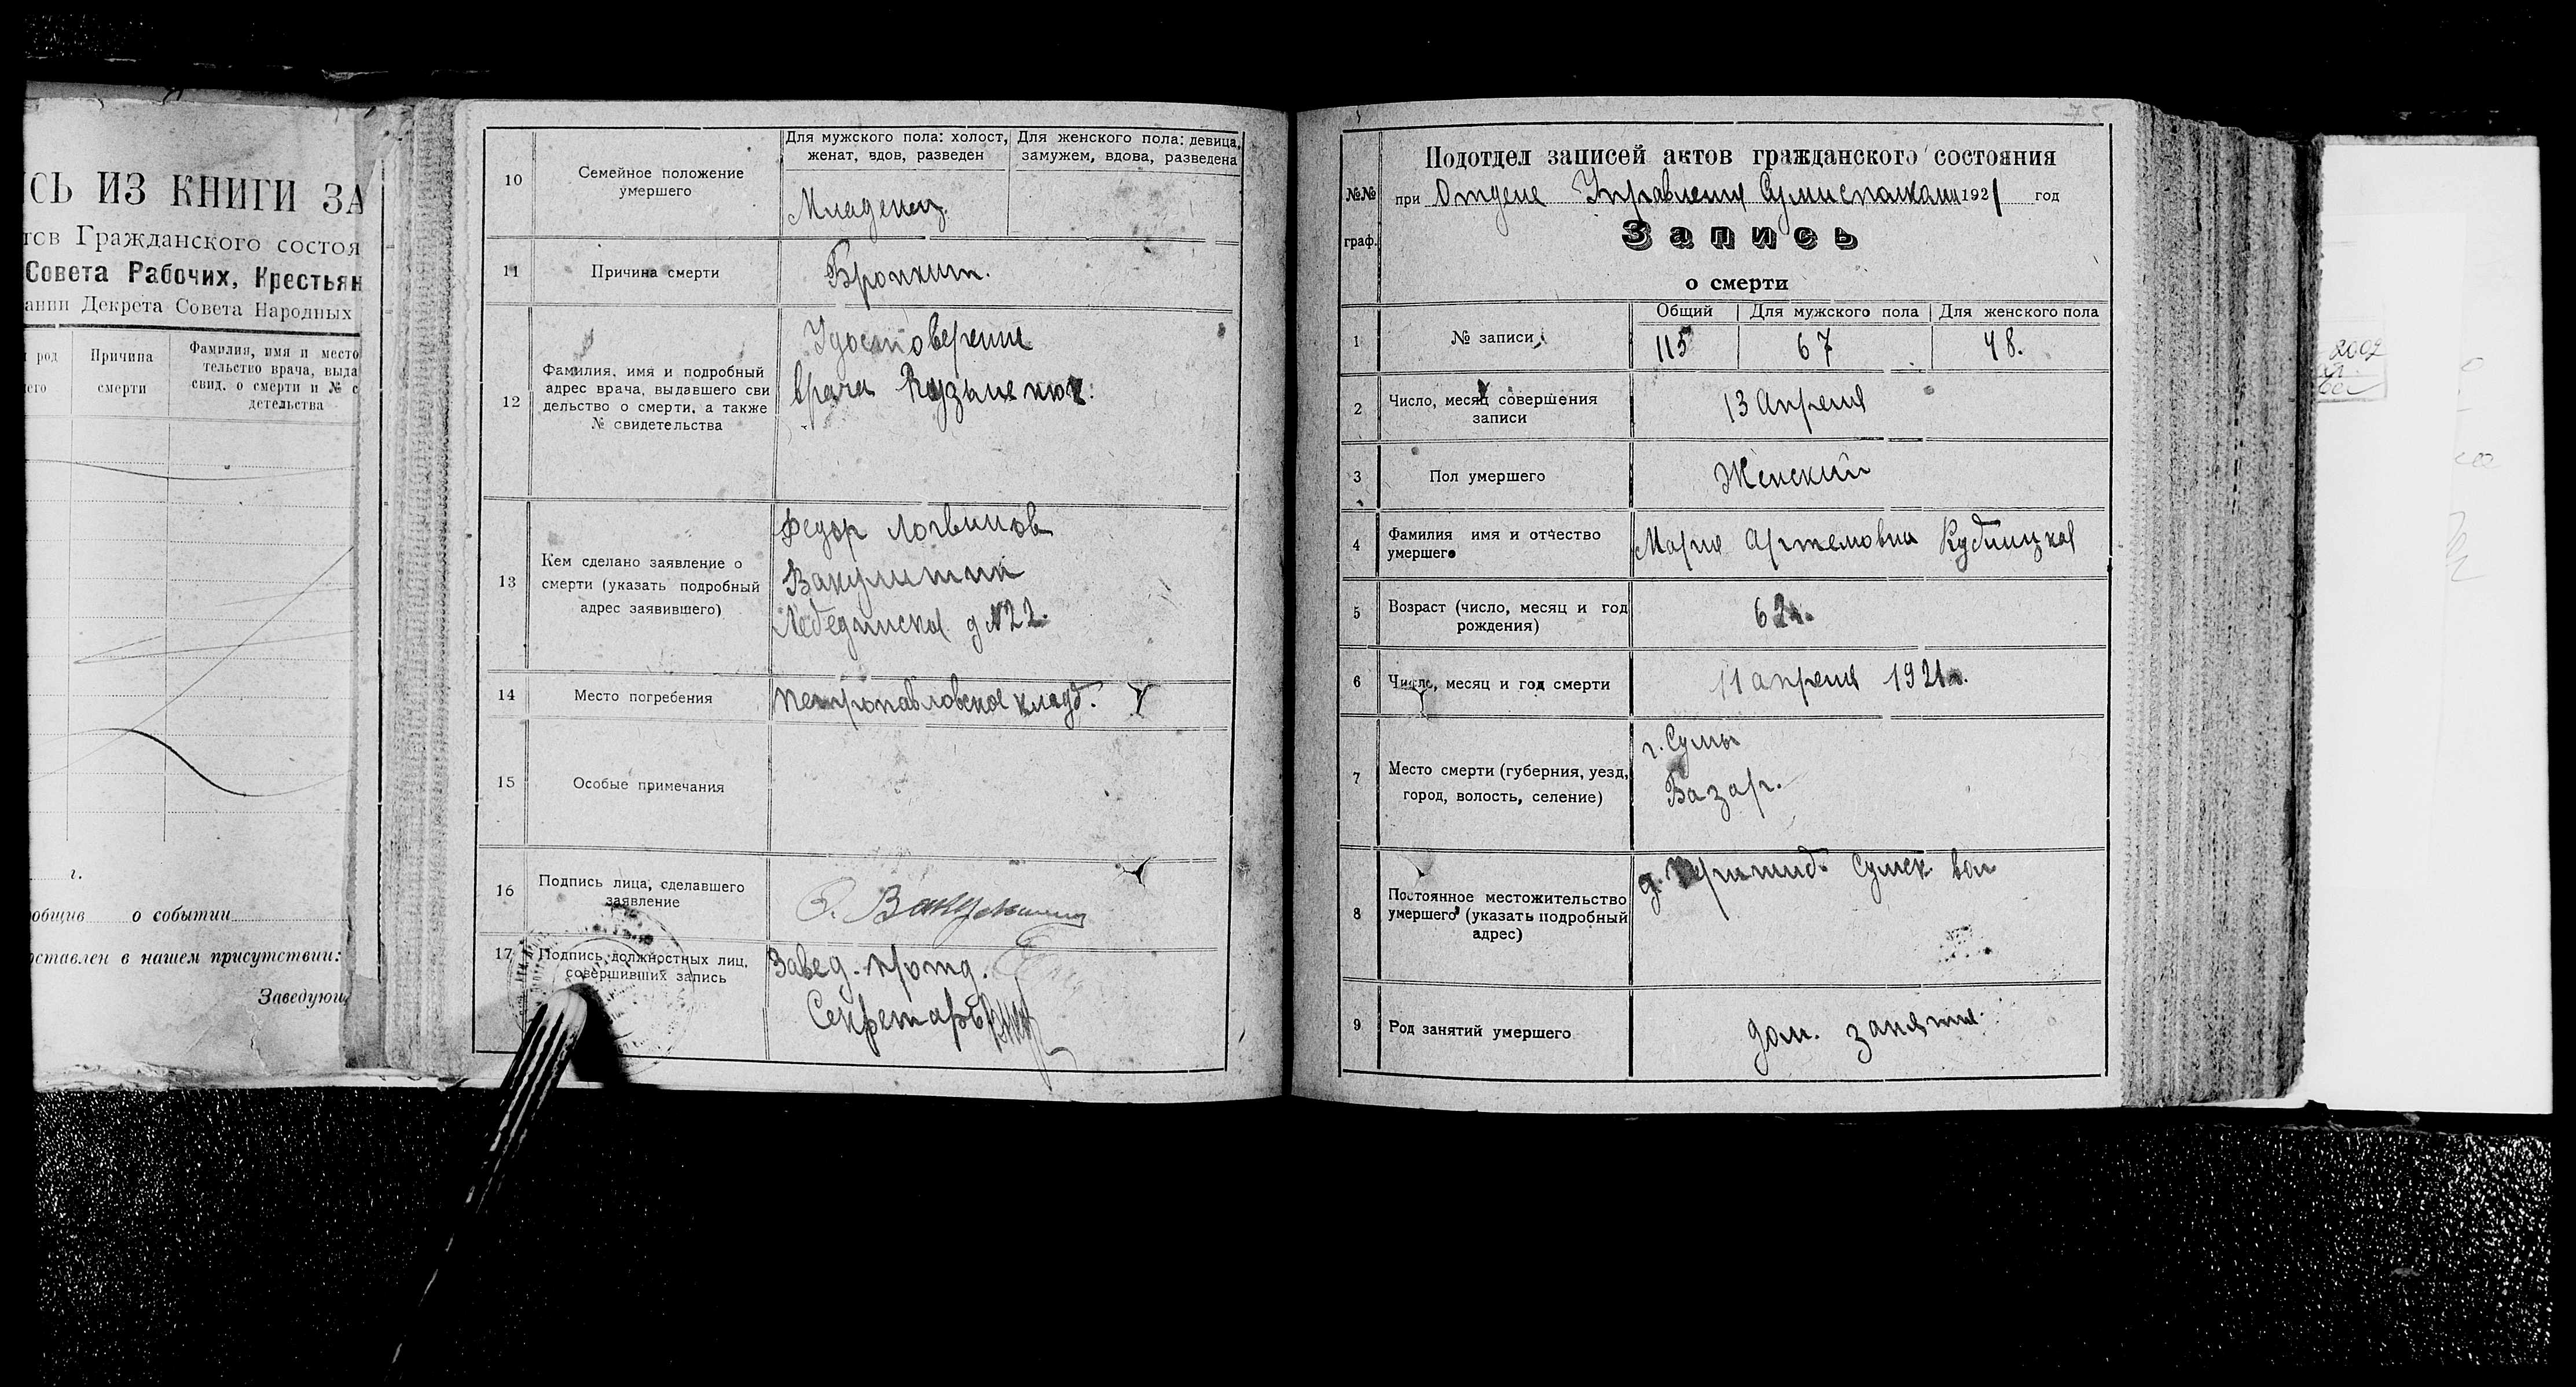 СЬ ИЗ КНИГИ ЗА
тов Гражданского состоя
Совета Рабочих, Крестьян
ании Декрета Совета Народных
род
его
Причина
смерти
Фамилия, имя и место
тельство врача, выда
свид. о смерти и № с
детельства
г.
общив о событии
оставлен в нашем присутствии:
Заведующ
10
Семейное положение
умершего
Для мужского пола: холост,
женат, вдов, разведен
Для женского пола: девица,
замужем, вдова, разведена
Младенец.
11
Причина смерти
Бронхит.
12
Фамилия, имя и подробный
адрес врача, выдавшего сви
дельство о смерти, а также
№ свидетельства
Удостоверение
врача
13
Кем сделано заявление о
смерти (указать подробный
адрес заявившего)
Федор Логвинов
Вакулишин
Лебединская д №22.
14
Место погребения
Петропавловское кладб.
15
Особые примечания
16
Подпись лица, сделавшего
заявление
17
Подпись должностных лиц,
совершивших запись
Завед. п/отд.
Секретарь
75
№№
граф.
Подотдел записей актов гражданского состояния
при Отделе Управления Сумисполкома 1921 год
Запись
о смерти
1
№ записи
Общий
Для мужского пола
Для женского пола
115
67
48.
2
Число, месяц совершения
записи
13 Апреля
3
Пол умершего
Женский
4
Фамилия имя и отчество
умершего
Мария Артемовна
5
Возраст (число, месяц и год
рождения)
62
6
Число, месяц и год смерти
11 апреля 1921г.
7
Место смерти (губерния, уезд,
город, волость, селение)
г. Сумы
Базар.
8
Постоянное местожительство
умершего (указать подробный
адрес)
д. Сумск вол
9
Род занятий умершего
дом. занятия.
2002